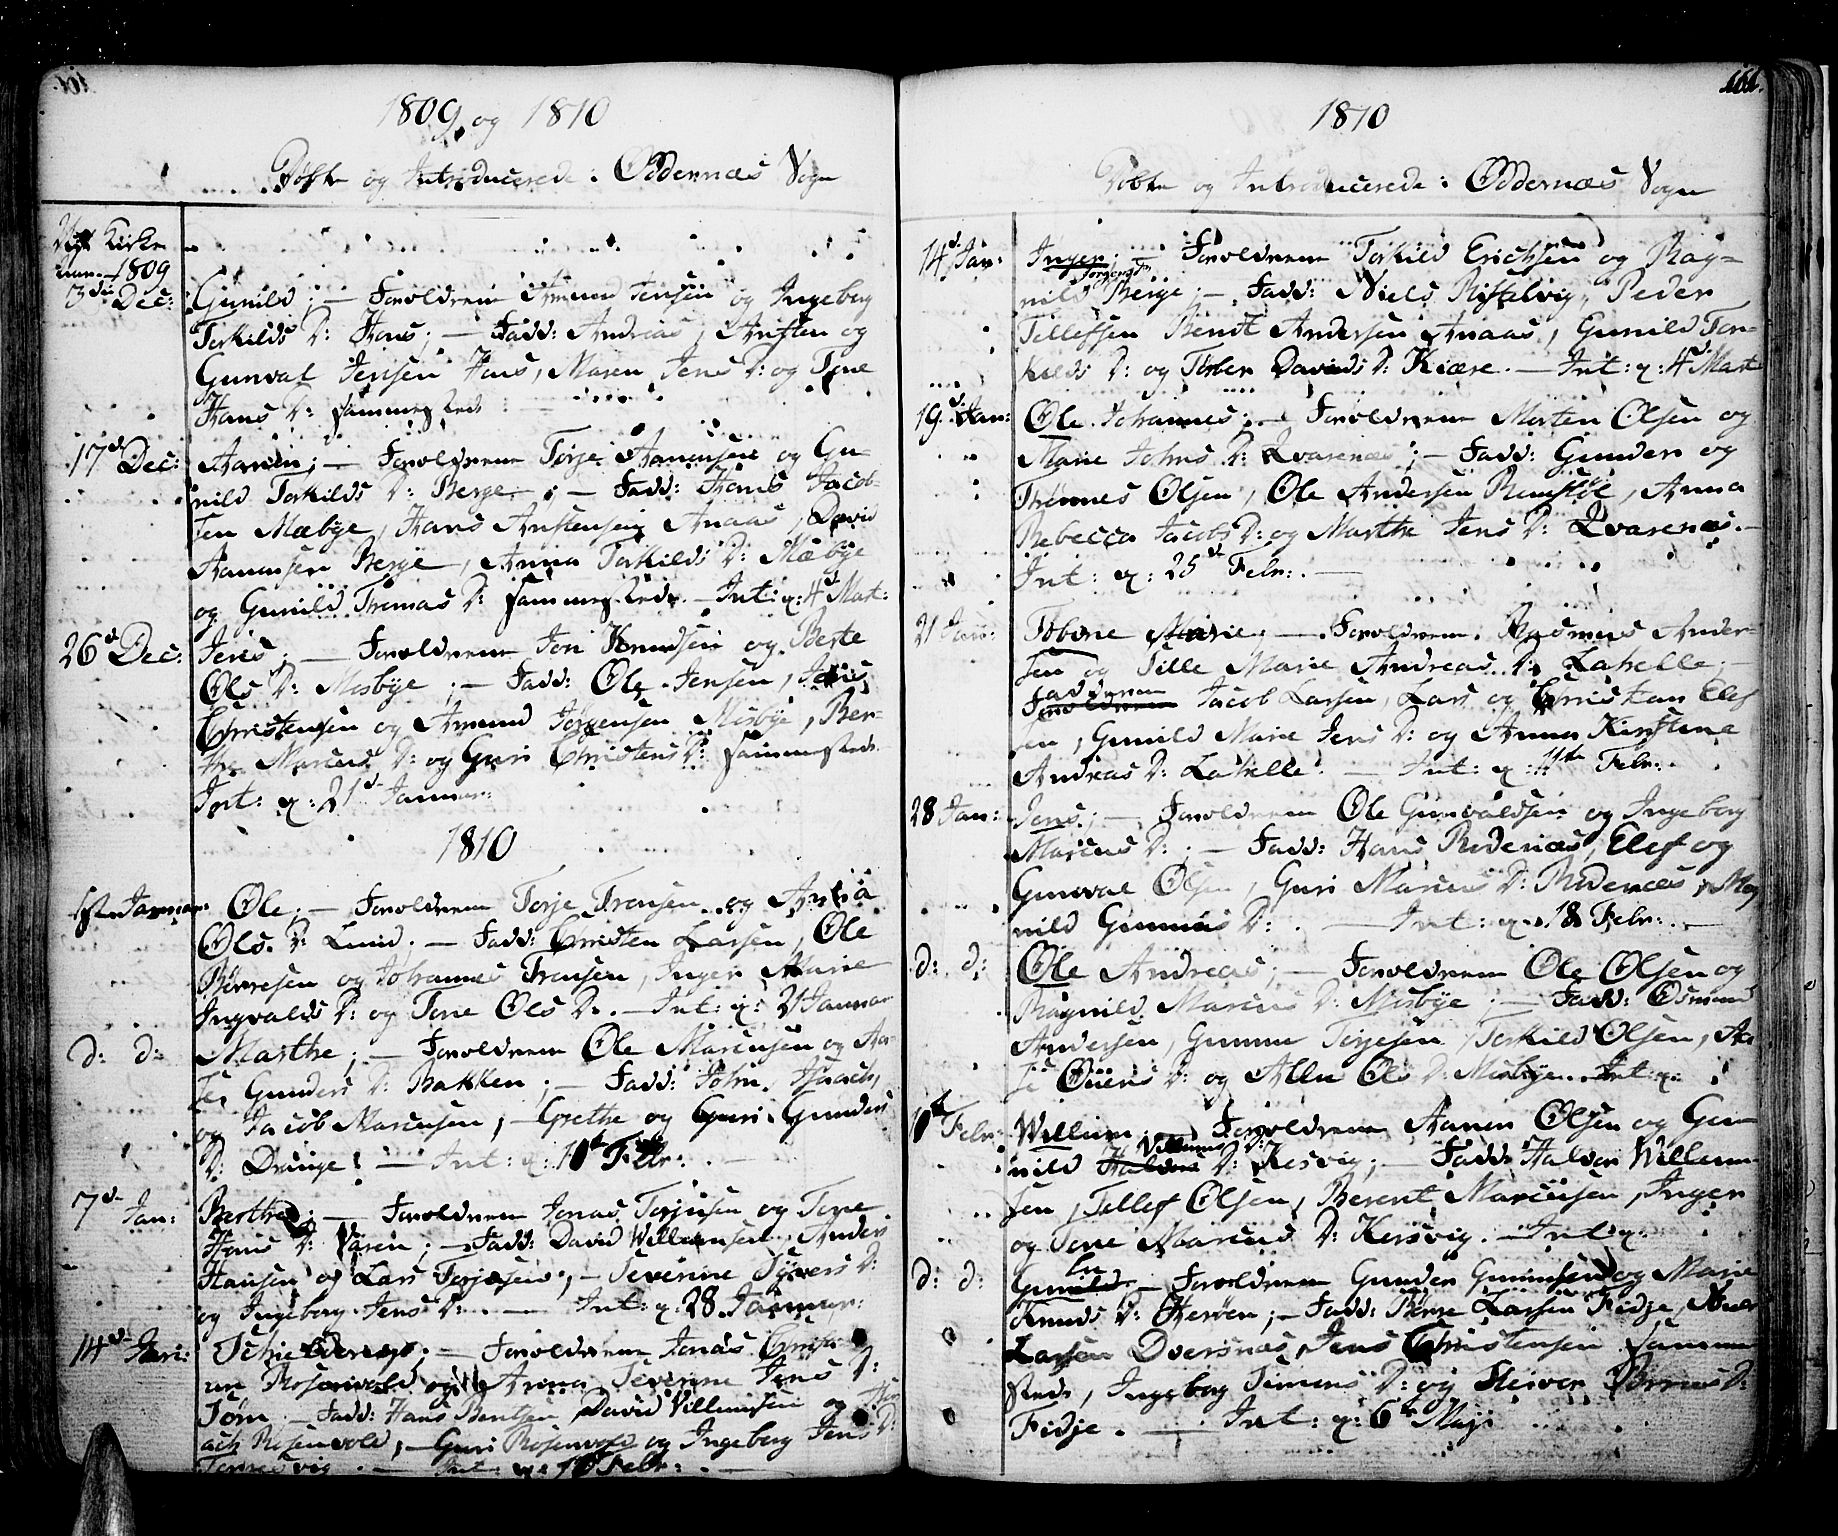 1809 og 1810
Døbte og Introducerede i Oddernæs Sogn
Kirke
1809
3die Dec:
Gunild; — Forældrene Amund Jensen og Ingeborg
Torkilds D: Haus; — Fadd: Andreas, Austen og
Gunval Jensen Haus, Maren Jens D: og Tone
Hans D: sammesteds
17d Dec:
Aanen; — Forældrene Torje Aanensen og Gu-
nild Torkilds D: Berge; — Fadd: Hans Jacob-
sen Mæbye, Hans Austensen Anaas, David
Aanensen Berge, Anna Torkilds D: Mæbye
og Gunild Thomas D: sammesteds. — Int: q: 4d Mart:
26d Dec:
Jens; — Forældrene Jon Knudsen og Berte
Ols D: Mosbye; — Fadd: Ole Jensen, Jens
Christensen og Amund Jørgensen Mosbye, Ber-
the Marcus D: og Guri Christens D: sammesteds.
Int: q: 21d Januar:
1810
1ste Januar:
Ole; — Forældrene Torje Fransen og
Ols D: Lund. — Fadd: Christen Larsen, Ole
Børresen og Johannes Fransen, Inger Marie
Ingvalds D: og Tone Ols D: — Int: q: 21 Januar
d: d:
Marthe; — Forældrene Ole Marcusen og Aa-
se Gunders D: Bakken; — Fadd: John Isaach,
og Jacob Marcusen, — Grethe og Guri Gunders
D: Drange. — Int: q: Febr:
7d Jan:
Berthe; — Forældrene Jonas Torjusen og Tone
Hans D: Vaaren; — Fadd: David Willumsen, Anders
Hansen og Lars Torjesen, — Severine Syvers D:
og Ingeborg Jens D: — Int: q: 28 Januar:
14d Jan:
— Forældrene Jonas
Rosenvold og Anna Severine Jens D:
— Fadd: Hans Bentsen, David Villumsen og
Rosenvold, — Guri Rosenvold og Ingeborg Jens D:
— Int: q: Febr:
1810
Døbte og Introducerede i Oddernæs Sogn
14d Jan:
Inger; — Forældrene Torkild Erichsen og Rag-
nild Berge; — Fadd: Niels Peder
Tellefsen Bendt Andersen Anaas, Gunild Tor-
kilds D: og Torber Davids D: Kiære. — Int: q: 4d Mart
19d Jan:
Ole Johannes; — Forældrene Morten Olsen og
Marie Johns D: Qvarenes; — Fadd: Gunder og
Thommes Olsen, Ole Andersen Remstøl, Anna
Rebecca Jacobs D: og Marthe Jens D: Qvarenes. —
Int: q: 25d Febr: —
21 Jan:
Tobine Marie, — Forældrene Rasmus Ander-
sen og Sille Marie Andreas D: Lahelle. —
Fadderne
Forældrene Jacob Larsen, Lars og Christian Elef
sen, Gunild Marie Jens D: og Anna Kirstine
Andreas D: Lahelle. — Int: q: 11te Febr:
28 Jan:
Jens; — Forældrene Ole Gunvaldsen og Ingeborg
Marcus D: ; — Fadd: Hans Rødenæs, Elef og
Gunval Olsen, Guri Marcus D: Rødenæs, Rag
nild Gunnus D: — Int: q: 18 Febr: —
d: d:
Ole Andreas; — Forældrene Ole Olsen og
Ragnild Marcus D: Mosbye; — Fadd: Osmund
Andersen, Gunme Torjesen, Torkild Olsen, Aa
se Oüens D: og Alle Ols D: Mosbye. Int: q:
Febr:
Willum; — Forældrene Aanen Olsen og Gun
Villums D:
nild Halvors D: Kosvig; — Fadd: Halvor Willum
sen, Tellef Olsen, Berent Marcusen, Inger
og Tone Marcus D: Kosvig. — Int: q:
d: d:
Gunild — Forældrene Gunder Gunnusen og Marie
Knuds D: Herøen; — Fadd: Børre Larsen Fidje,
Larsen Dversnæs, Jens Christensen samme
steds, Ingeborg Simens D: og Børres D:
Fidje. — Int: q: 6te Maji